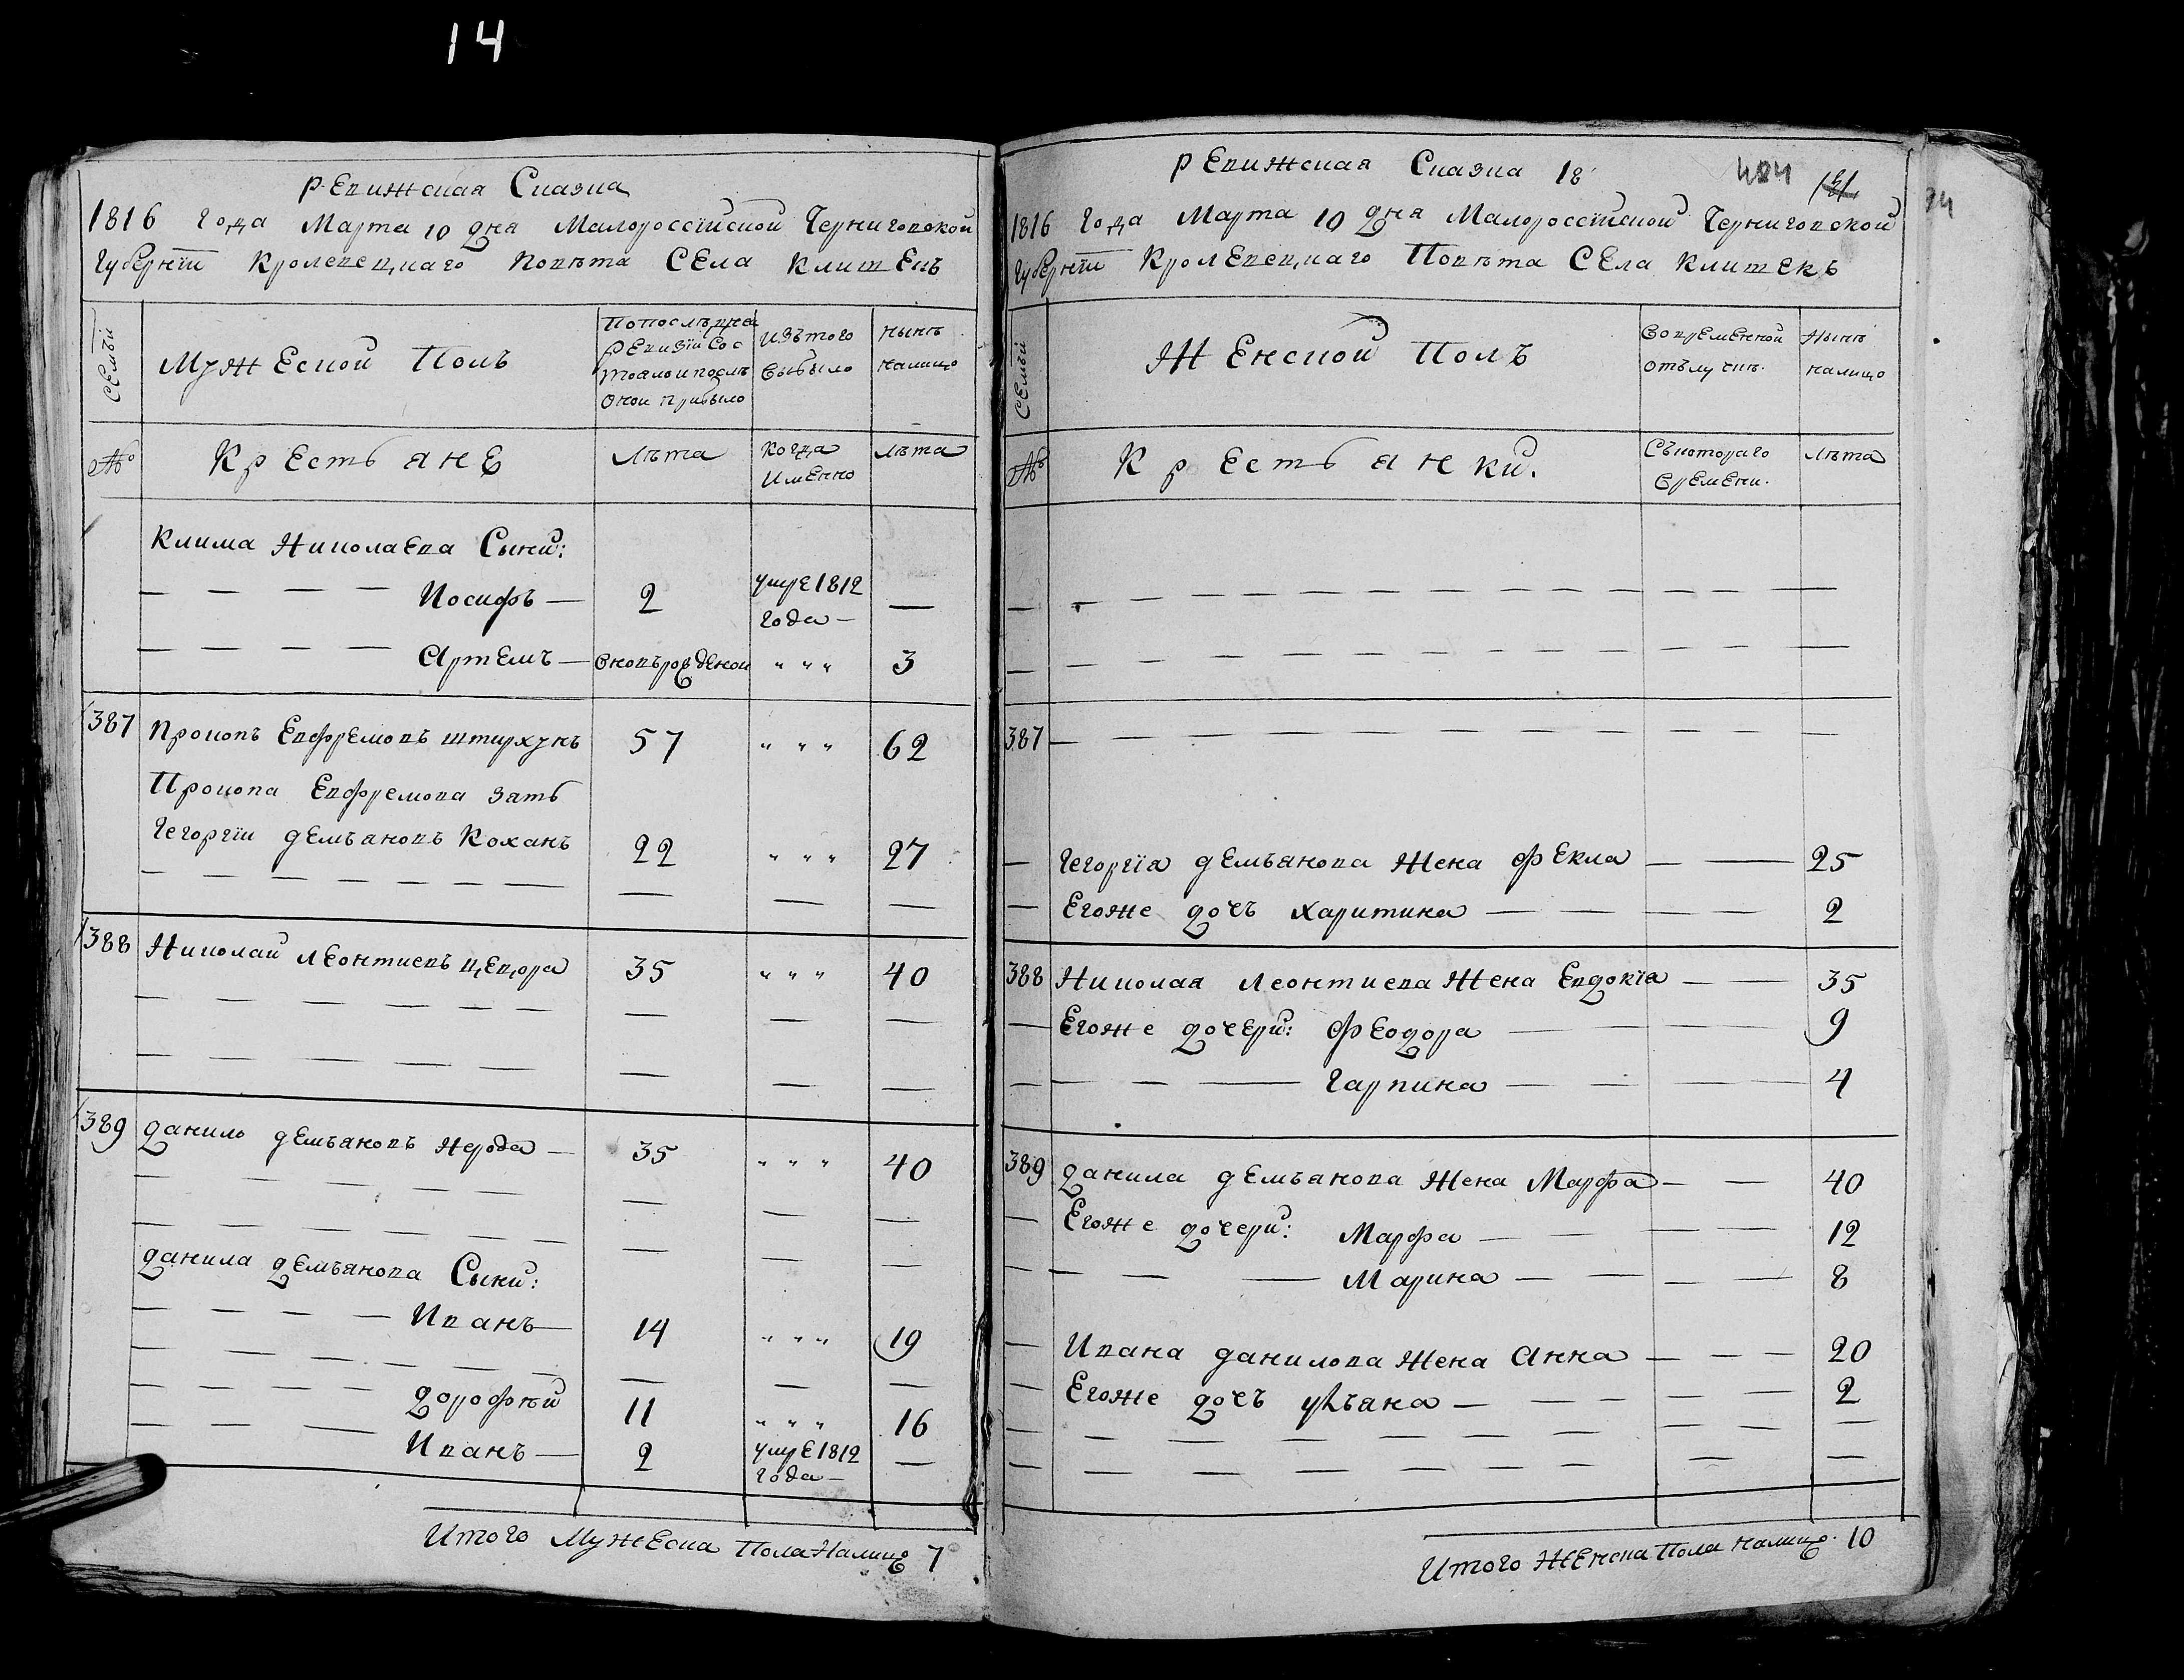 14
Ревижская Сказка
1816 Года Марта 10 дня Малороссїйской Черниговской
Губернїи Кролевецкаго Повѣта Села Клишекъ
Семьи
Мужеской Полъ
Попоследнеи ревизїи состояло и послѣ оной прибыло
Изътого выбыло
Нынѣ налицо
№
Крестьяне
Лѣта
Когда Именно
Лѣта
Клима Николаева Сыни:
Иосифъ — 2 умре 1812 года — —
Артемъ — вновърожденои " " " 3
387 Прокопъ Евфремовъ штирхунъ 57 " " " 62
Прокопа Евфремова зать
Георгїи демъяновъ Коханъ 22 " " " 27
388 Николаи Леонтиевъ цецора 35 " " " 40
389 данило демъяновъ Нерода — 35 " " " 40
данила демъянова Сыни:
Иванъ — 14 " " " 19
дорофѣй 11 " " " 16
Иванъ — 2 умре 1812 года — —
Итого Мужеска Пола Налицо 7
Ревижская Сказка 18
404
181
1816 Года Марта 10 дня Малороссїйской Черниговской
Губернїи Кролевецкаго Повѣта Села Клишекъ
Семьи
Женской Полъ
Вовременной отълучкѣ.
Нынѣ налицо
№
Крестьянки.
Съкотораго времени.
Лѣта
387
Георгїя демъянова Жена Фекла — — 25
Егоже дочъ Харитина — — — — 2
388 Николая Леонтиева Жена Евдокїя — — 35
Егоже дочери: Феодора — — — 9
Гарпина — — — 4
389 данила демъянова Жена Марфа — — 40
Егоже дочери: Марфа — — — 12
Марина — — — — 8
Ивана данилова Жена Анна — — — 20
Егоже дочъ улъяна — — — — — 2
Итого Женска Пола налицо. 10